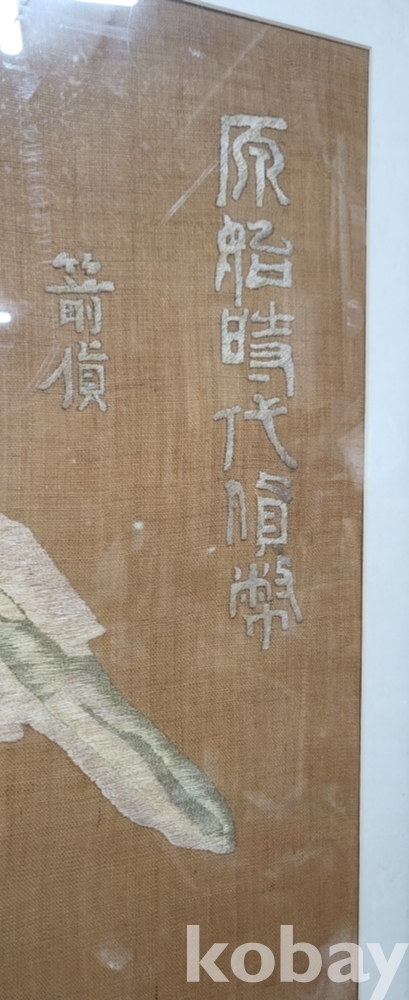 原始時代貨幣
箭貨
kobay